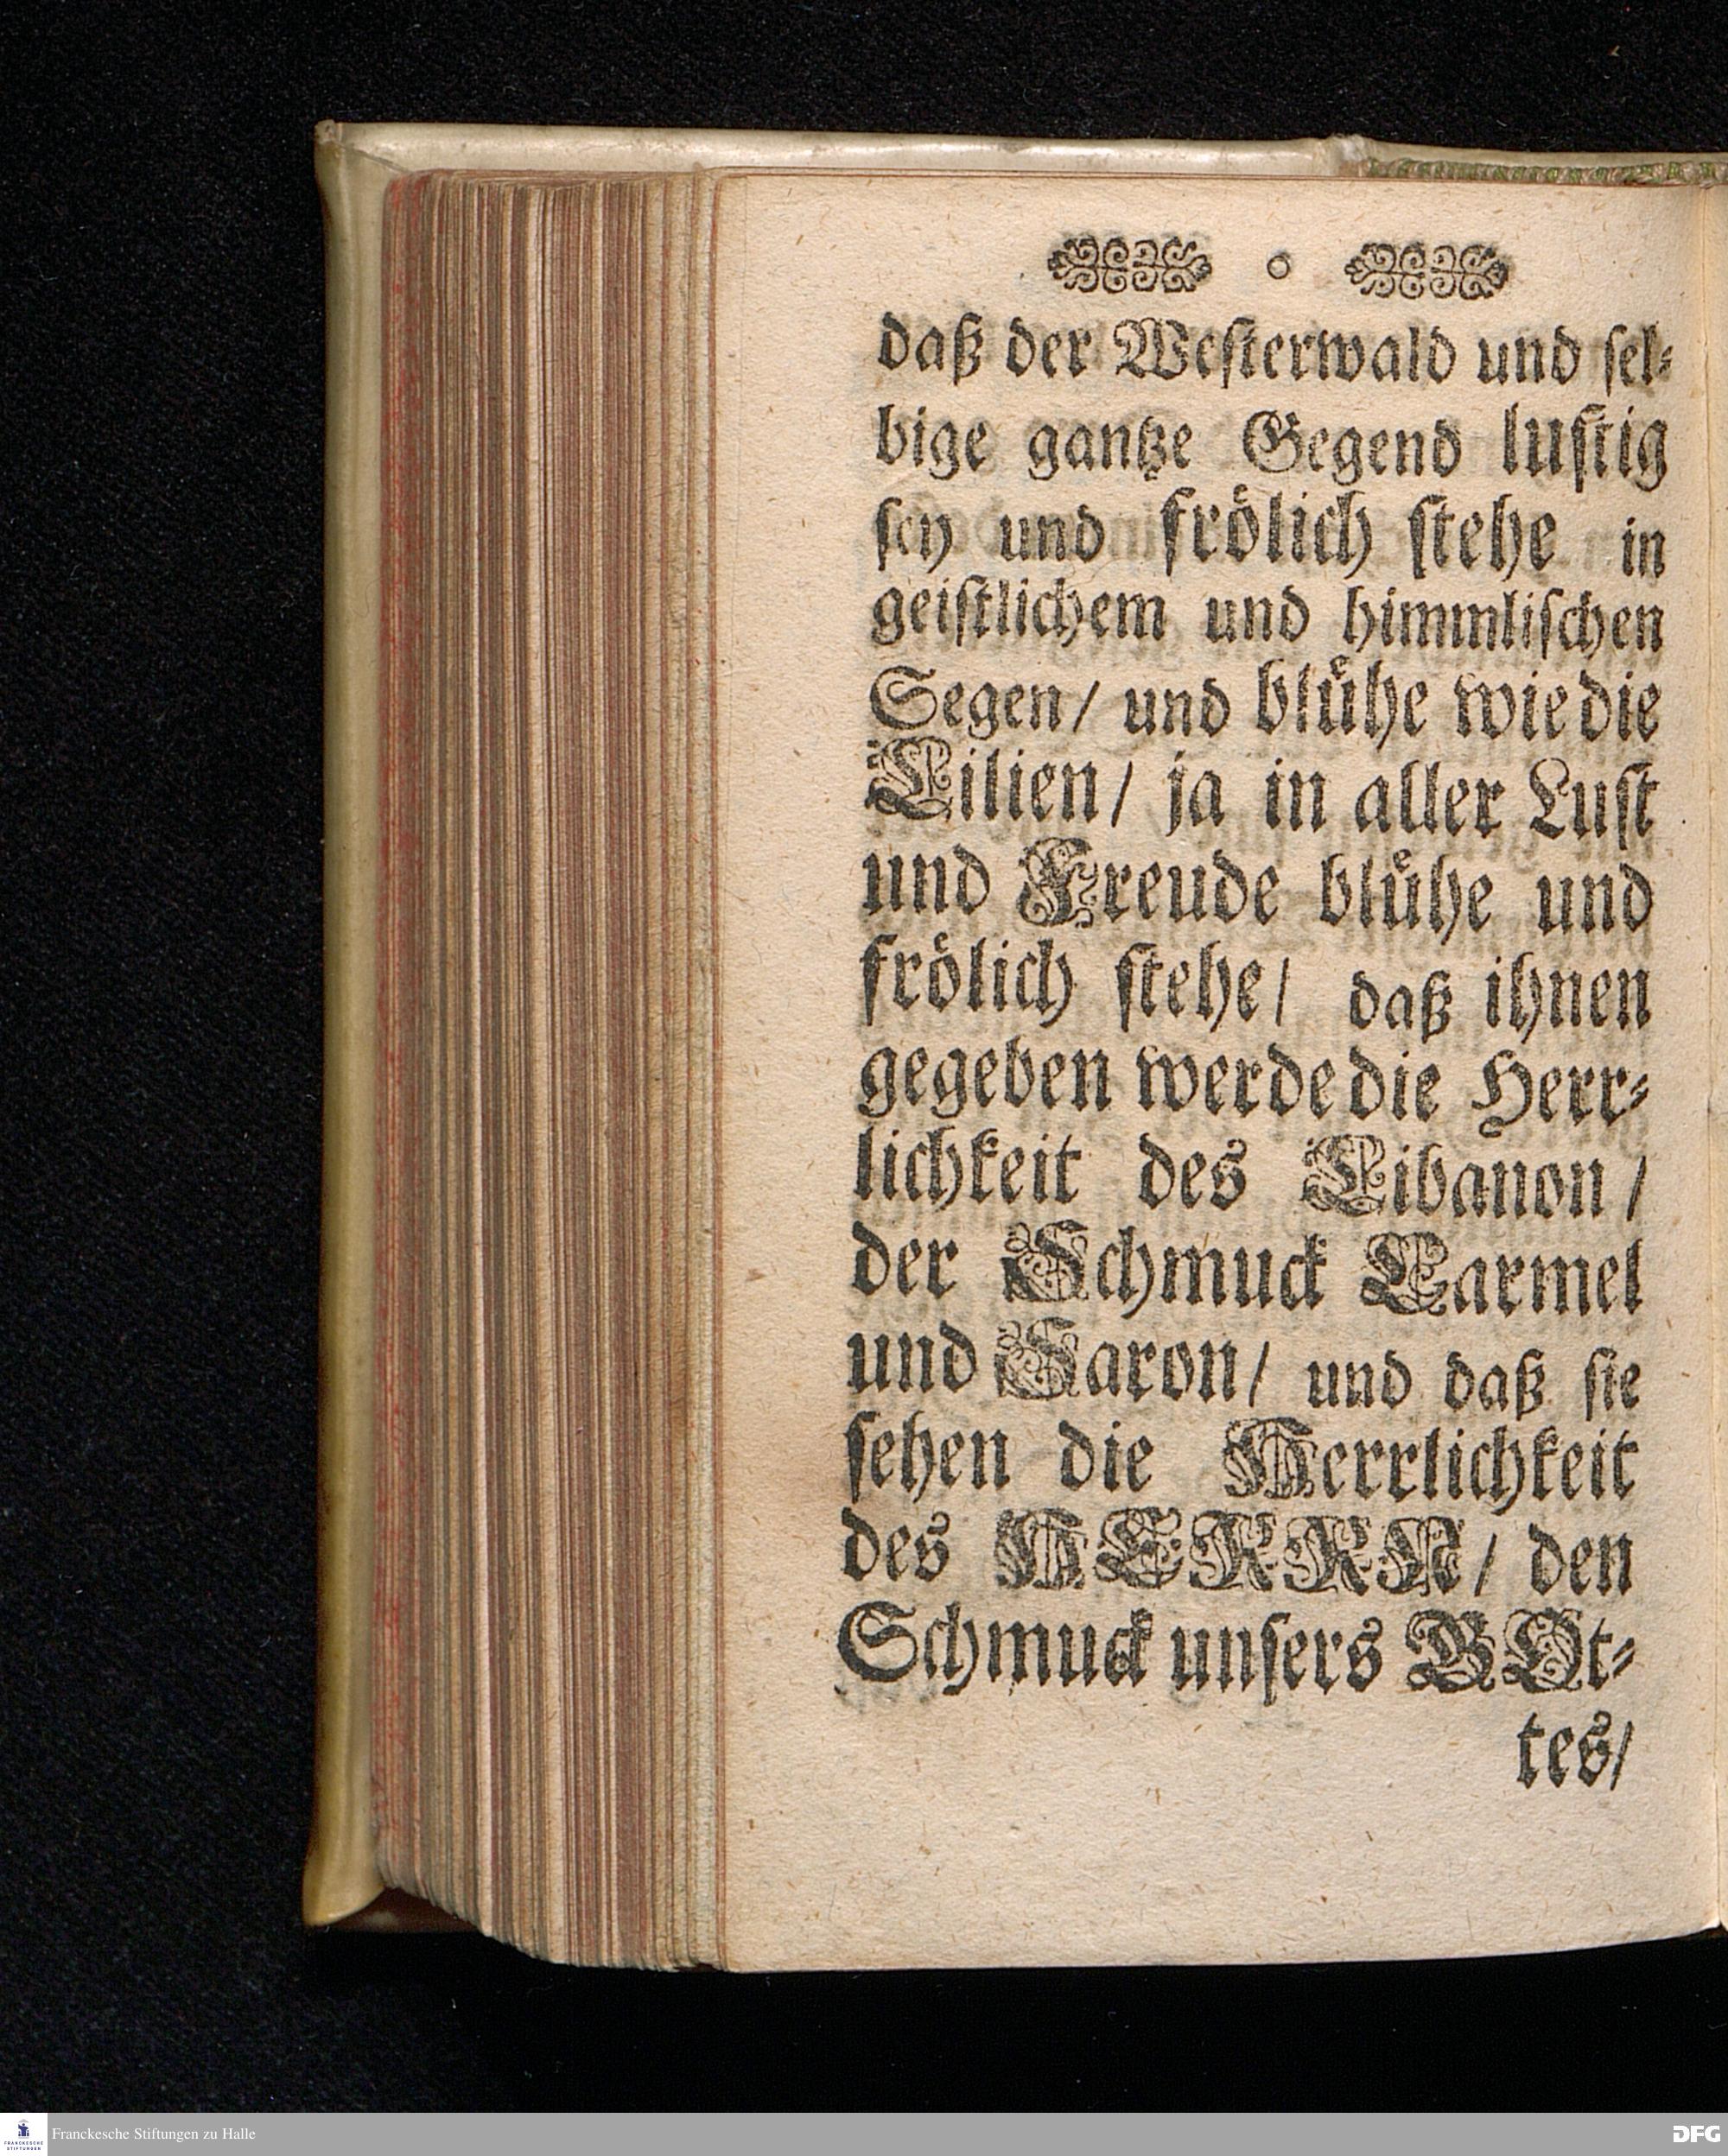 daß der Westerwald und sel-
bige gantze Gegend lustig
sey und frölich stehe in
geistlichem und himmlischen
Segen/ und blühe wie die
Lilien/ ja in aller Lust
und Freude blühe und
frölich stehe/ daß ihnen
gegeben werde die Herr-
lichkeit des Libanon/
der Schmuck Carmel
und Saron/ und daß sie
sehen die Herrlichkeit
des HERRN/ den
Schmuck unsers GOt-
tes/
FRANCKESCHE STIFTUNGEN
Franckesche Stiftungen zu Halle
DFG